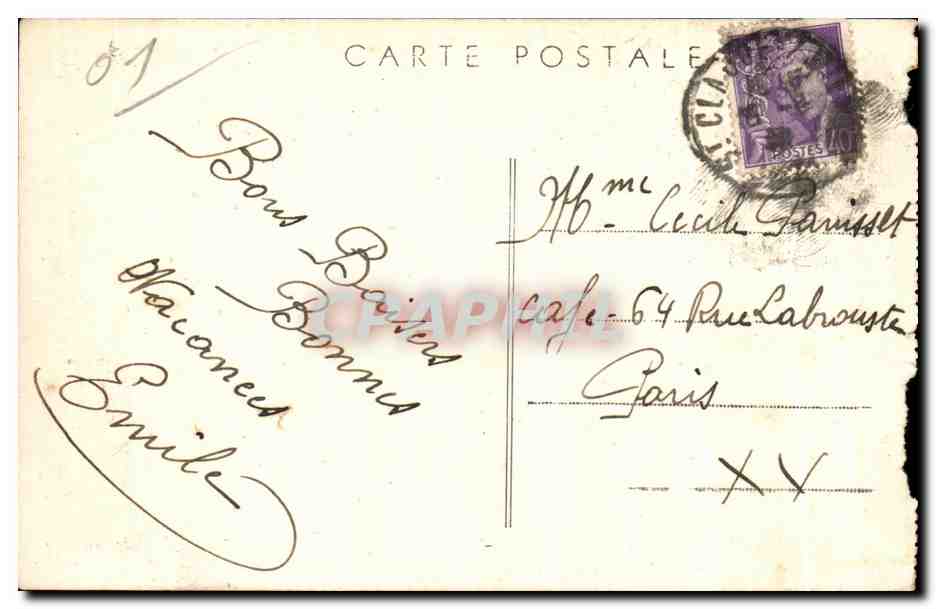 01
CARTE POSTALE
ST. CLA
POSTES 40
Bons Baisers
Bonnes
Vacances
Emile
Mme Cecile Panisset
cafe - 64 Rue Labrouste
Paris
XV
CPAPHIL